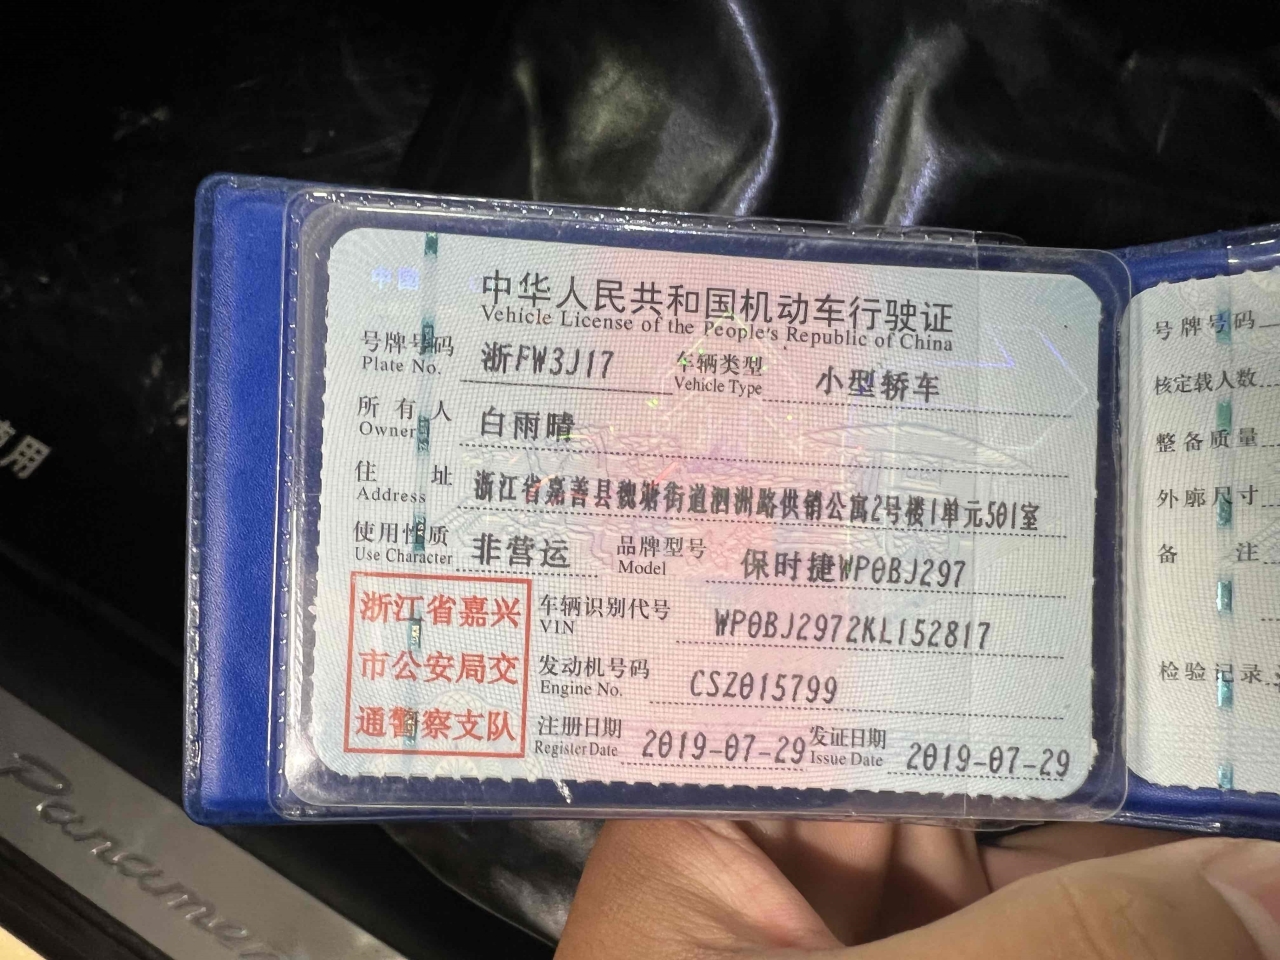 中国
中华人民共和国机动车行驶证
Vehicle License of the People's Republic of China
号牌号码 浙FW3J17 车辆类型 小型轿车
Plate No. Vehicle Type
所有人 白雨晴
Owner
住址 浙江省嘉善县魏塘街道泗洲路供销公寓2号楼1单元501室
Address
使用性质 非营运 品牌型号 保时捷WP0BJ297
Use Character Model
浙江省嘉兴
市公安局交
通警察支队
车辆识别代号 WP0BJ2972KL152817
VIN
发动机号码 CSZ015799
Engine No.
注册日期 2019-07-29 发证日期 2019-07-29
Register Date Issue Date
号牌号码
核定载人数
整备质量
外廓尺寸
备注
检验记录
用
Panamer